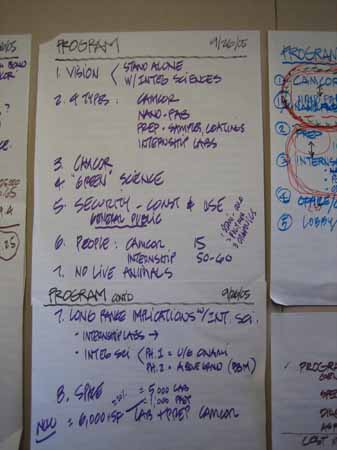 PROGRAM 9/26/05
1. VISION < STAND ALONE
W/ INTEG SCIENCES
2. 4 TYPES: CAMCOR
NANO-FAB
PREP - SAMPLES, COATINGS
INTERNSHIP LABS
3. CAMCOR
4. "GREEN" SCIENCE
5. SECURITY - CONST & USE
GENERAL PUBLIC
6. PEOPLE: CAMCOR 15
INTERNSHIP 50-60
7. NO LIVE ANIMALS
PROGRAM CONTD 9/26/05
7. LONG RANGE IMPLICATIONS W/ INT. SCI.
• INTERNSHIP LABS →
• INTEG SCI < PH. 1 = U/G ONAMI
PH. 2 = ABOVE LAND (BBM)
8. SPACE = 5,000 LAB
1,000 PREP
NOW = 6,000 SF LAB + PREP CAMCOR
PROGRAM
1 CAMCOR
2 PREP
3 INTERNS
4 OFFICE/
5 LOBBY/
PROGRA
COST
9.4
.25